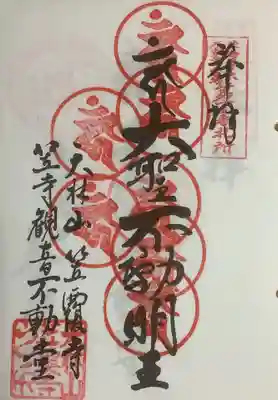 奉拝
大聖不動明王
天林山 笠覆寺
笠寺観音不動堂